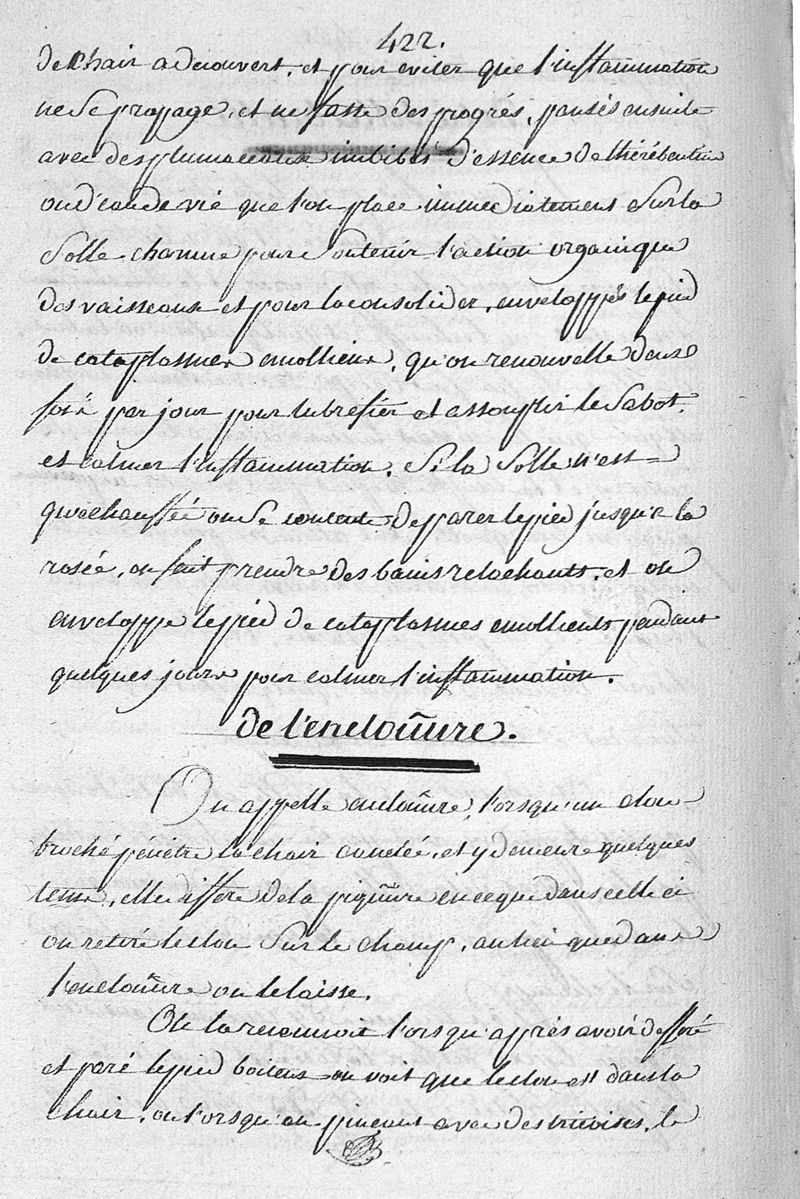 422.
de Chair a decouvert, et pour eviter que l'inflammation
ne se propage, et ne fasse des progrés, pansés ensuite
avec des plumaceaux imbibés d'essence de thérébentine
ou d'eau de vie que l'on place immediatement sur la
solle charnue pour soutenir l'action organique
des vaisseaux et pour la consolider, enveloppés le pied
de cataplasmes emolliens, qu'on renouvelle deux
fois par jour pour lubrefier et assouplir le sabot,
et calmer l'inflammation. Si la solle n'est =
qu'echauffée on se contente de parer le pied jusqu'a la
rosée, on fait prendre des bains relachants, et on
enveloppe le pied de cataplasmes emollients pendant
quelques jours pour calmer l'inflammation.
de l'encloüure.
On appelle encloüure, lorsqu'un clou
broché pénétre la chair canelée, et y demeure quelques
tems, elle differe de la piqûure en ce que dans celle ci
on retire le clou sur le champ, au lieu que dans
l'encloüure on le laisse.
On la reconnoit lorsqu'aprés avoir defferé
et paré le pied boiteux on voit que le clou est dans la
chair, ou lorsqu'en pincant avec des tricoises, le